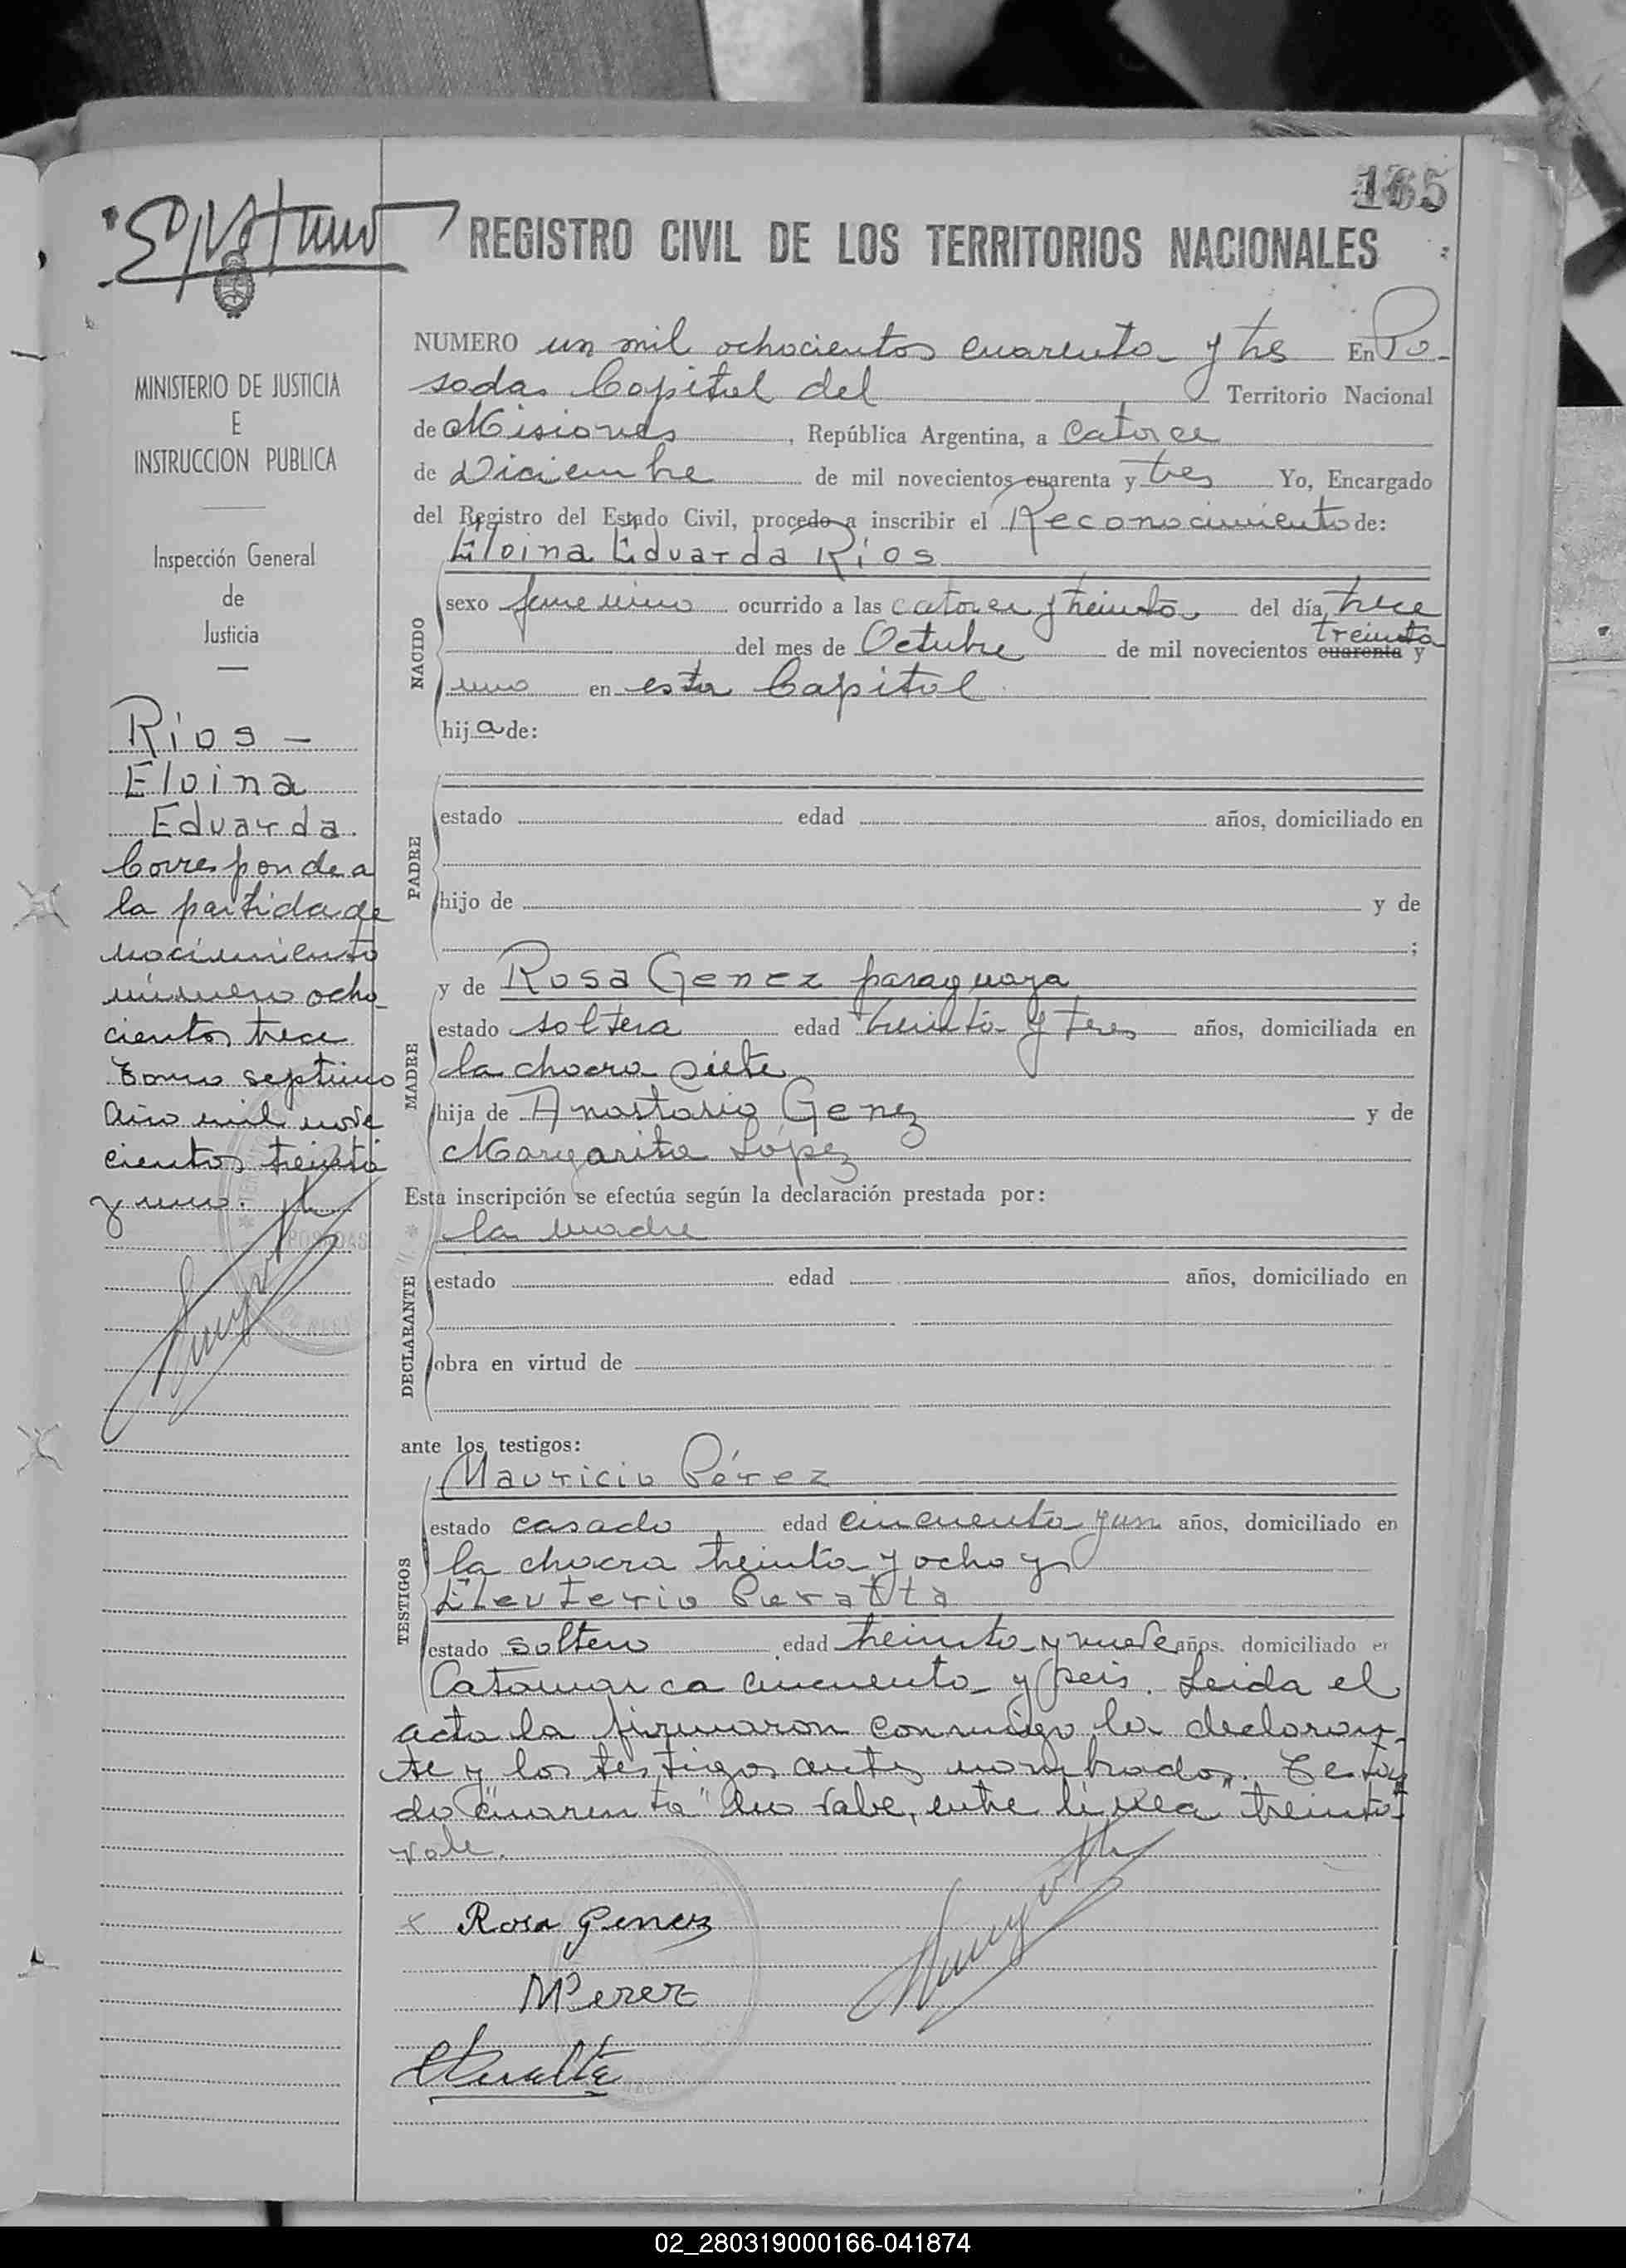 165
REGISTRO CIVIL DE LOS TERRITORIOS NACIONALES
MINISTERIO DE JUSTICIA
E
INSTRUCCION PUBLICA
Inspección General
de
Justicia
Rios -
Eloina
Eduarda.
Corresponde a
la partida de
nacimiento
número ocho
cientos trece
Tomo septimo
año mil nove
cientos treinta
y uno.
NUMERO un mil ochocientos cuarenta y tres En Po-
sadas Capital del Territorio Nacional
de Misiones, República Argentina, a catorce
de Diciembre de mil novecientos cuarenta y tres Yo, Encargado
del Registro del Estado Civil, procedo a inscribir el Reconocimiento de:
Eloina Eduarda Rios
NACIDO
sexo femenino ocurrido a las catorce y treinta del día trece
treinta
del mes de Octubre de mil novecientos cuarenta y
uno en esta Capital
hija de:
PADRE
estado edad años, domiciliado en
hijo de y de
;
y de Rosa Genez paraguaya
MADRE
estado soltera edad treinta y tres años, domiciliada en
la chacra siete
hija de Anastasio Genez y de
Margarita López
Esta inscripción se efectúa según la declaración prestada por:
la madre
DECLARANTE
estado edad años, domiciliado en
obra en virtud de
ante los testigos:
Mauricio Pérez
TESTIGOS
estado casado edad cincuenta y un años, domiciliado en
la chacra treinta y ocho y
Eleuterio Peralta
estado soltero edad treinta y nueve años. domiciliado en
Catamarca cincuenta y seis. Leida el
acta la firmaron conmigo la declaran-
te y los testigos antes nombrados. Testa
do "cuarenta" no vale, entre linea "treinta"
vale.
x Rosa Genez
MPerez
EPeralta
POSADAS
02_280319000166-041874